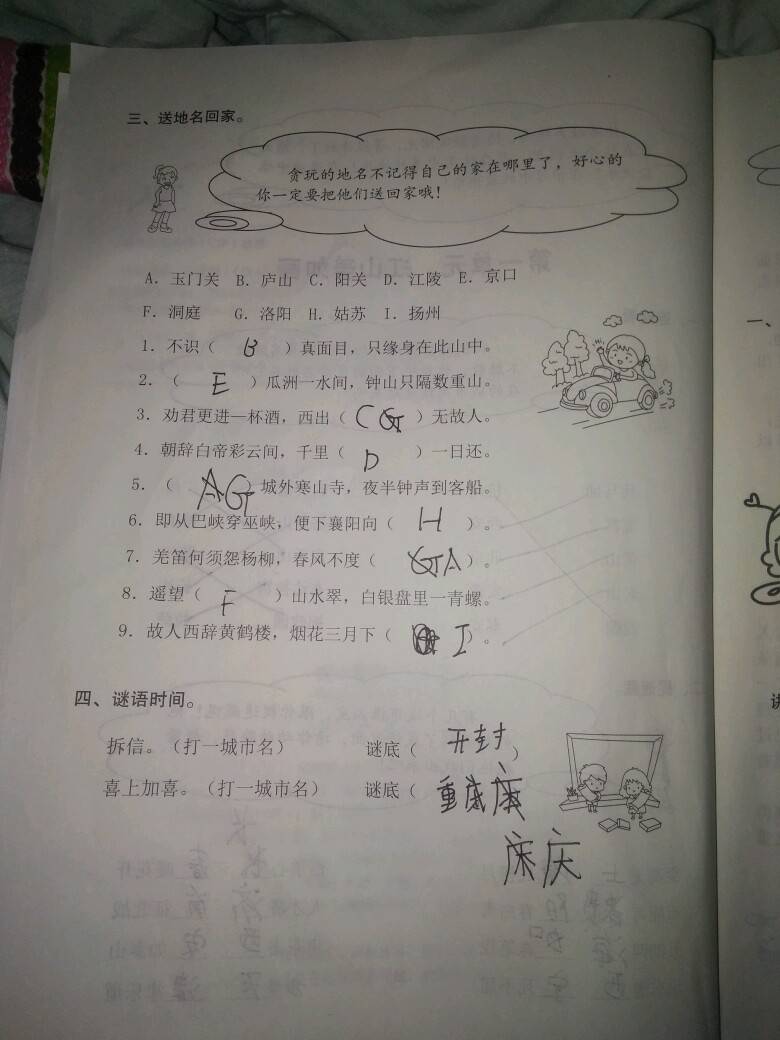 三、送地名回家。
贪玩的地名不记得自己的家在哪里了，好心的
你一定要把他们送回家哦！
A．玉门关 B．庐山 C．阳关 D．江陵 E．京口
F．洞庭 G．洛阳 H．姑苏 I．扬州
1．不识（ B ）真面目，只缘身在此山中。
2．（ E ）瓜洲一水间，钟山只隔数重山。
3．劝君更进一杯酒，西出（ C ）无故人。
4．朝辞白帝彩云间，千里（ D ）一日还。
5．（ AG 城外寒山寺，夜半钟声到客船。
6．即从巴峡穿巫峡，便下襄阳向（ H ）。
7．羌笛何须怨杨柳，春风不度（ A ）。
8．遥望（ F ）山水翠，白银盘里一青螺。
9．故人西辞黄鹤楼，烟花三月下（ I ）。
四、谜语时间。
拆信。（打一城市名） 谜底（ 开封 ）
喜上加喜。（打一城市名） 谜底（ 重
庆